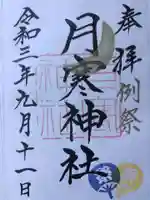 奉拝
例祭
月寒神社
令和三年九月十一日